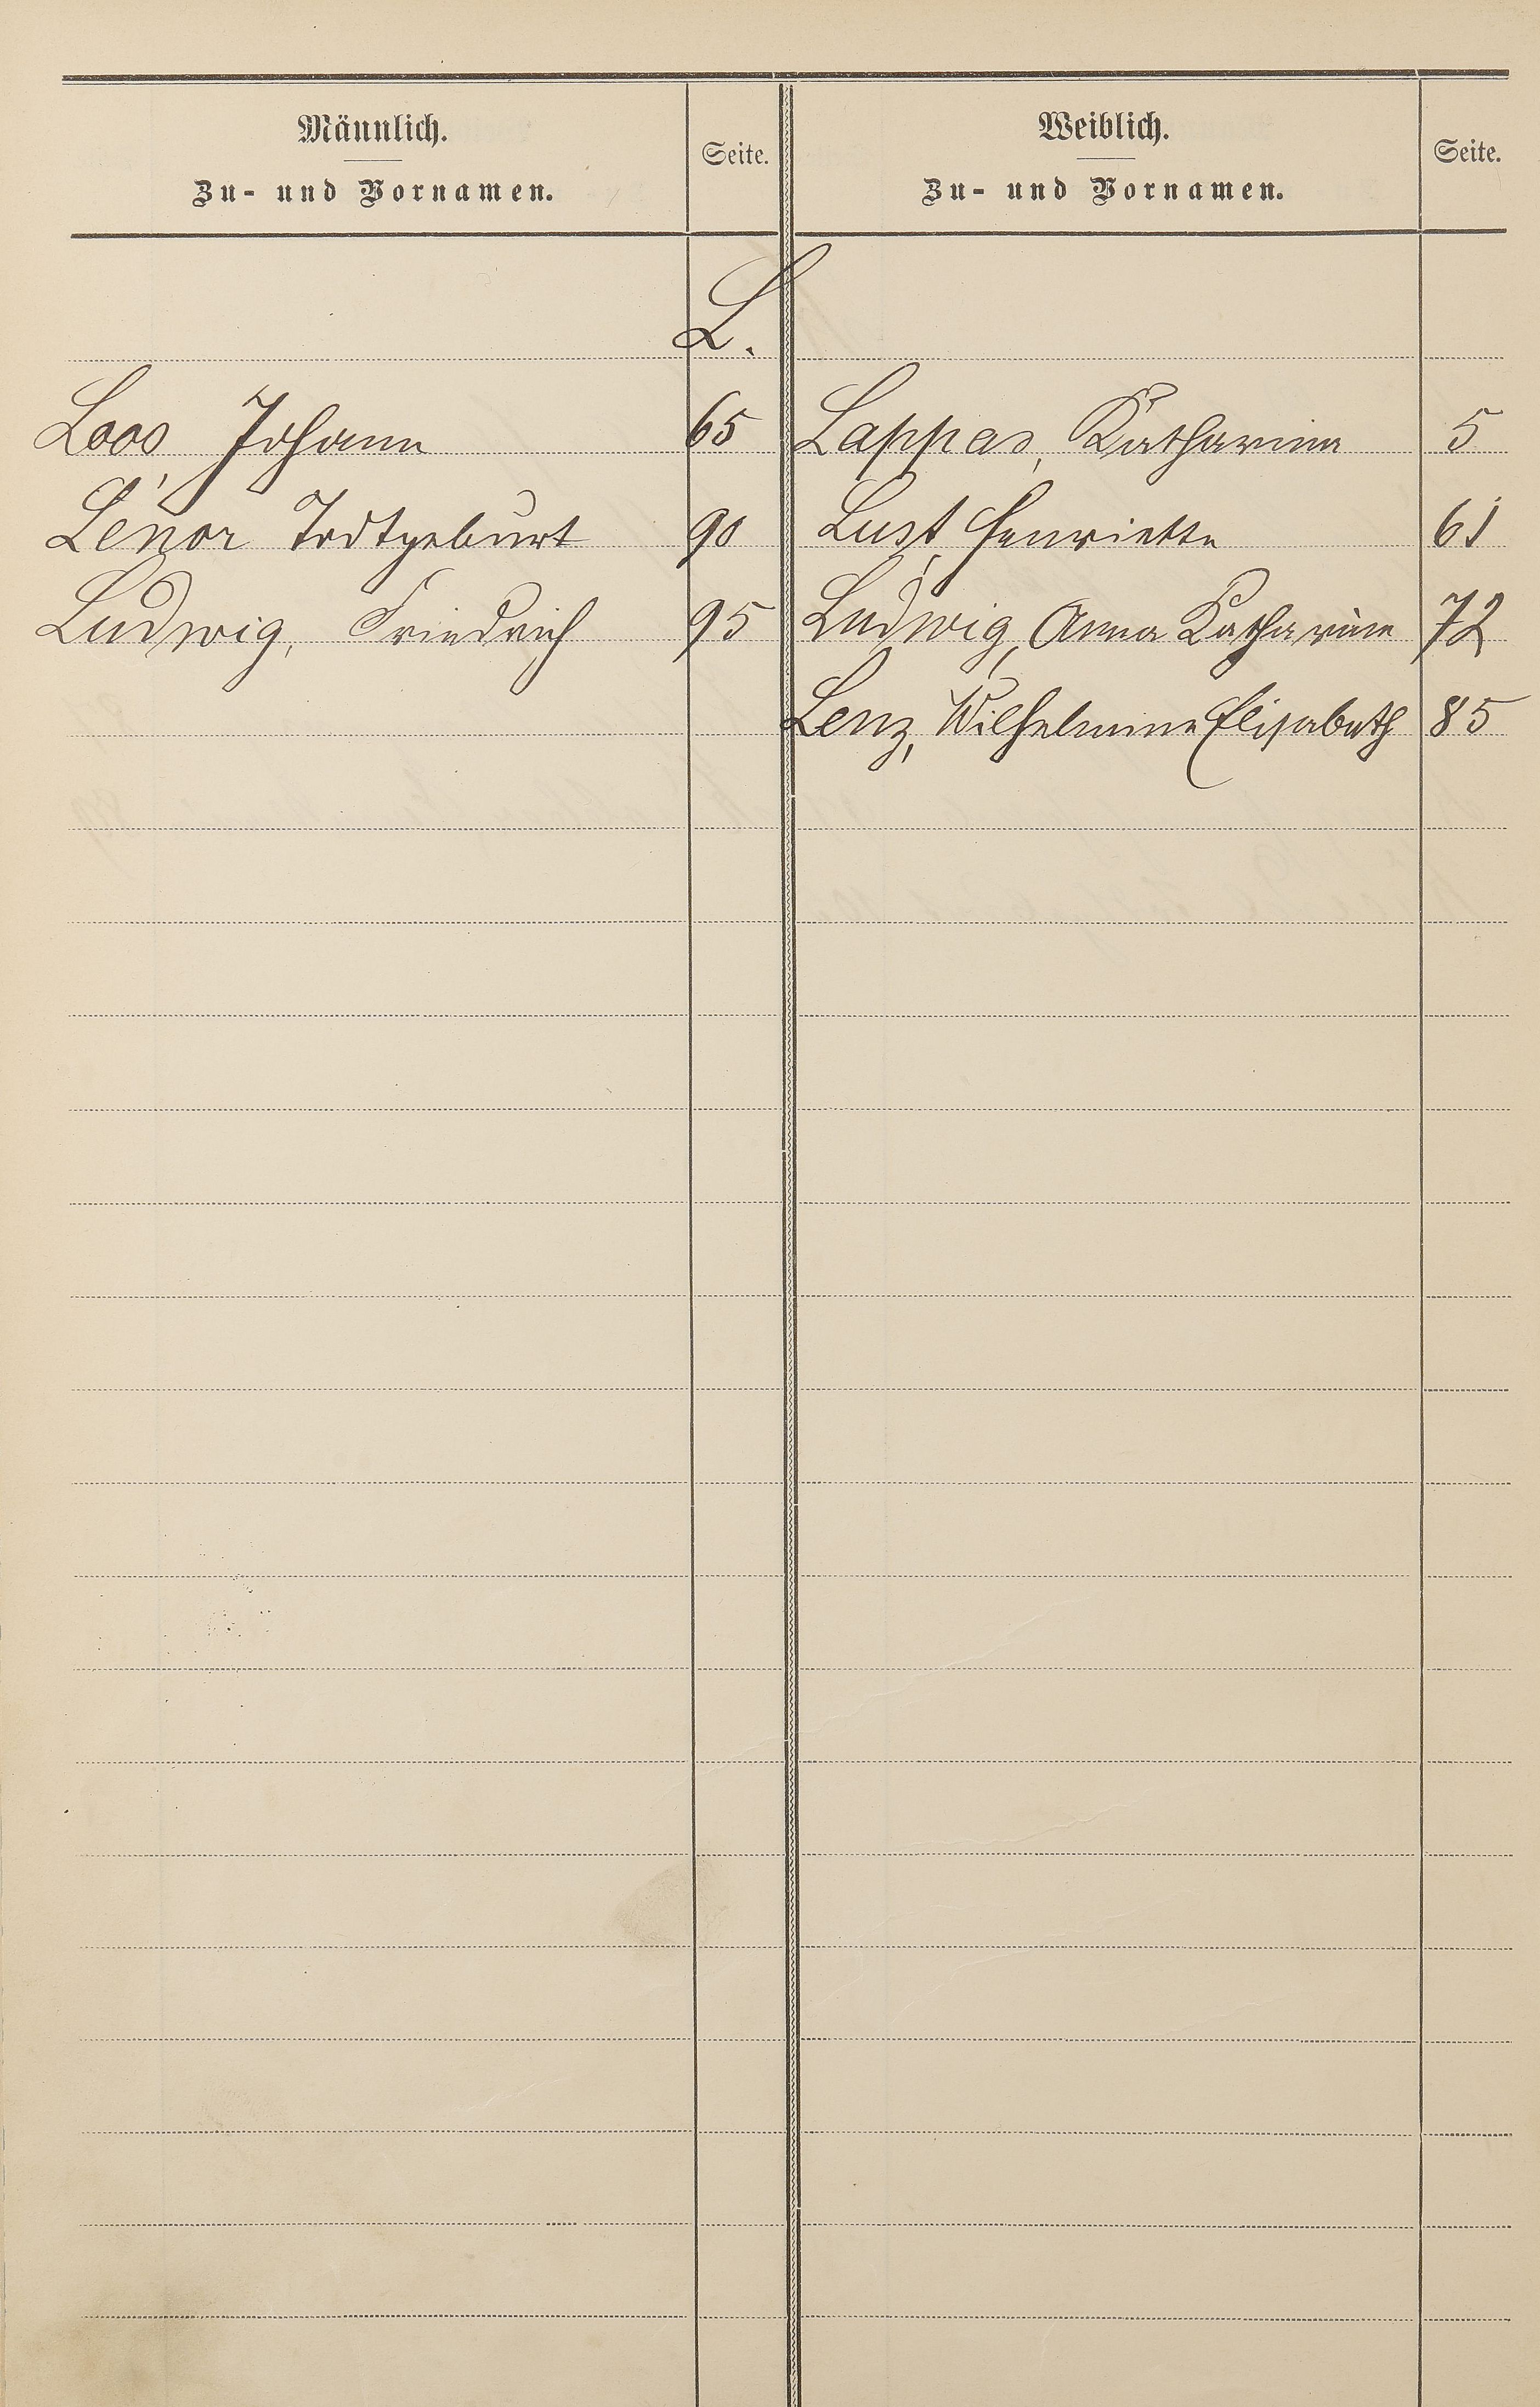 Männlich.
Zu- und Vornamen.
Seite.
Weiblich.
Zu- und Vornamen.
Seite.
L.
Loos, Johann 65 Lappas, Katharina 5
Lenor Todtgeburt 90 Lust, Henriette 61
Ludwig, Friedrich 95 Ludwig, Anna Katharina 72
Lenz, Wilhelmine Elisabeth 85